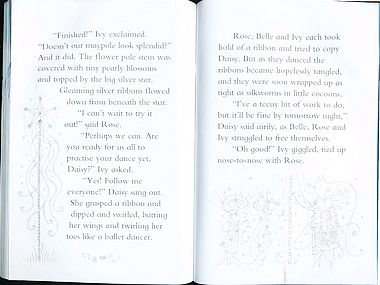 "Finished!" Ivy exclaimed.
"Doesn't our maypole look splendid?"
And it did. The flower pole stem was
covered with tiny pearly blossoms
and topped by the big silver star.
Gleaming silver ribbons flowed
down from beneath the star.
"I can't wait to try it
out!" said Rose.
"Perhaps we can. Are
you ready for us all to
practise your dance yet,
Daisy?" Ivy asked.
"Yes! Follow me
everyone!" Daisy sang out.
She grasped a ribbon and
dipped and swirled, batting
her wings and twirling her
toes like a ballet dancer.
Rose, Belle and Ivy each took
hold of a ribbon and tried to copy
Daisy. But as they danced the
ribbons became hopelessly tangled,
and they were soon wrapped up as
tight as silkworms in little cocoons.
"I've a teeny bit of work to do,
but it'll be fine by tomorrow night,"
Daisy said airily, as Belle, Rose and
Ivy struggled to free themselves.
"Oh good!" Ivy giggled, tied up
nose-to-nose with Rose.